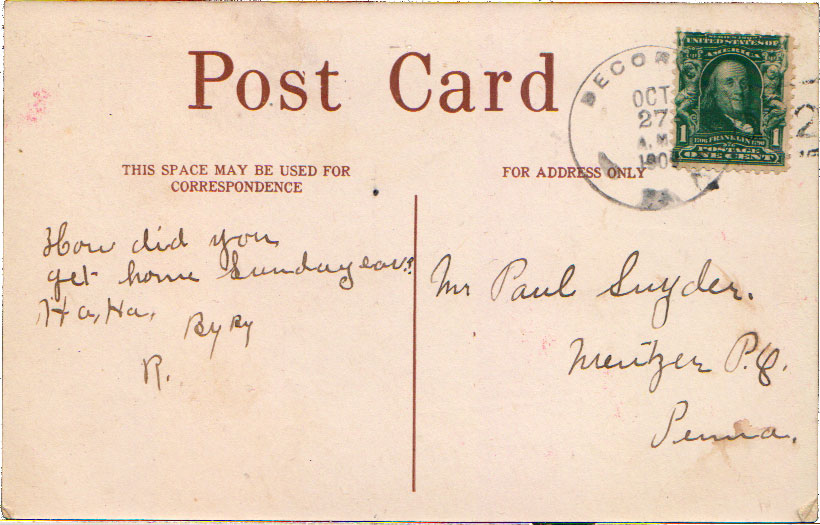 Post Card
THIS SPACE MAY BE USED FOR
CORRESPONDENCE
FOR ADDRESS ONLY
DECOR
OCT
27
A.M.
190
UNITED STATES OF
AMERICA
1 1706 FRANKLIN 1790 1
POSTAGE
ONE CENT
2
How did you
get home Sunday eav?
Ha, Ha,
By By
R.
Mr Paul Snyder.
Mentzer P.O.
Penna.